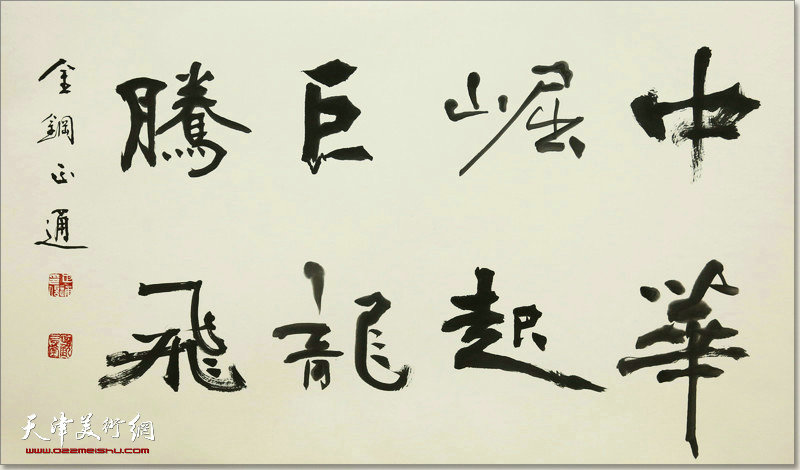 中華
崛起
巨龍
騰飛
金鋼正通
天津美術網
www.022meishu.com